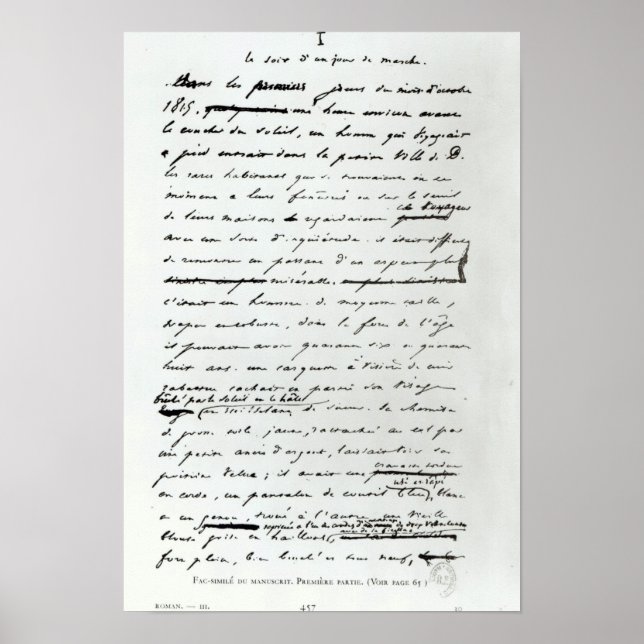 I
Le soir d'un jour de marche.
Dans les premiers jours du mois d'octobre
1815, une heure environ avant
le coucher du soleil, un homme qui voyageait
à pied entrait dans la petite ville de D.
les rares habitants qui se trouvaient en ce
moment à leurs fenêtres ou sur le seuil
de leurs maisons regardaient ce voyageur
avec une sorte d'inquiétude. il était difficile
de rencontrer un passant d'un aspect plus
misérable.
c'était un homme de moyenne taille,
trapu et robuste, dans la force de l'âge
il pouvait avoir quarante six ou quarante
huit ans. une casquette à visière de cuir
rabattue cachait en partie son visage
brûlé par le soleil et le hâle
et ruisselant de sueur. sa chemise
de grosse toile jaune, rattachée au col par
une petite ancre d'argent, laissait voir sa
poitrine velue; il avait une
cravate tordue
en corde, un pantalon de coutil bleu,
usé et râpé
blanc
à un genou, troué à l'autre, une vieille
blouse grise en haillons,
fort plein, bien bouclé et tout neuf,
FAC-SIMILÉ DU MANUSCRIT. PREMIÈRE PARTIE. (VOIR PAGE 65)
ROMAN. — III.
457